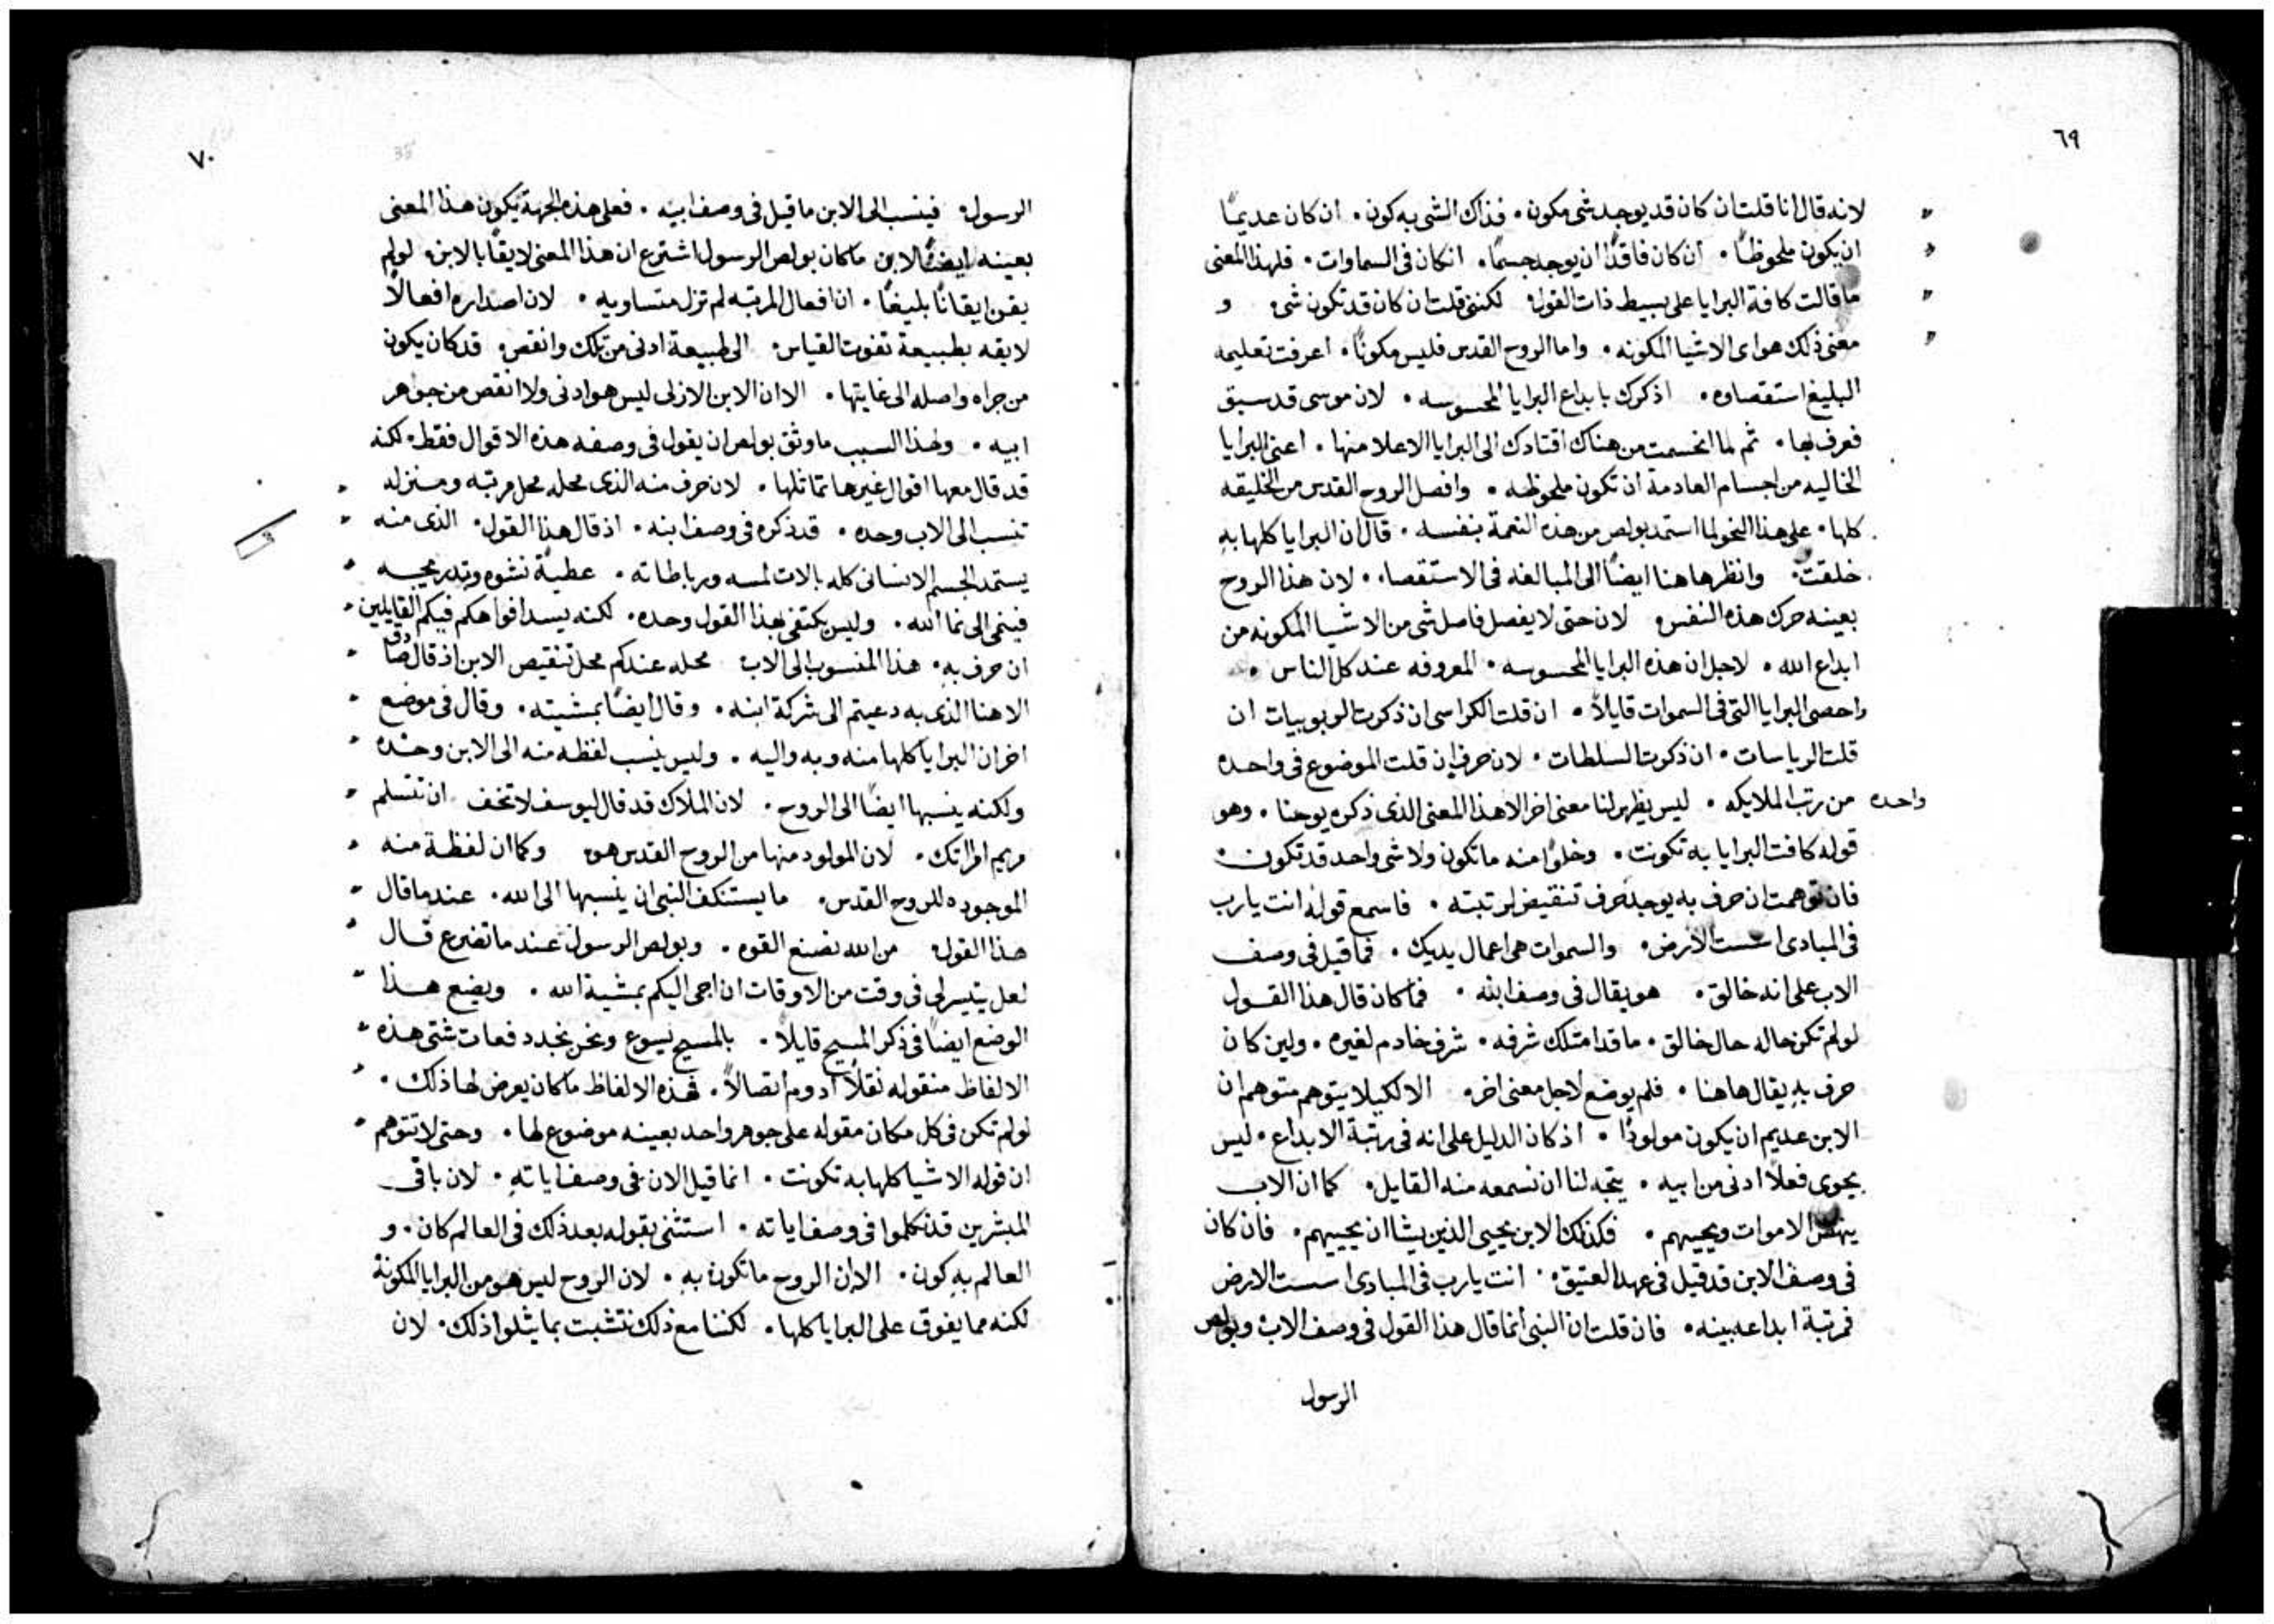 ٦٩
لانه قال انا قلت ان كان قد يوجد شى مكون · فذاك الشى به كون · ان كان عديمًا
ان يكون ملحوظًا · ان كان فاقدًا ان يوجد جسمًا · انكان فى السماوات · فلهذا المعنى
ما قالت كافة البرايا على بسيط ذات القول · لكننى قلت ان كان قد تكون شى · و
معنى ذلك هو اى الاشيا المكونه · واما الروح القدس فليس مكونًا · اعرفت تعليمه
البليغ استقصاوه · اذكرك بابداع البرايا المحسوسه · لان موسى قد سبق
فعرف بها · ثم لما انحسمت من هناك اقتادك الى البرايا الاعلا منها · اعنى البرايا
الخاليه من اجسام العادمة ان تكون ملحوظه · وافصل الروح القدس من الخليقه
كلها · على هذا النحو لما استمد بولص من هذه النعمة بنفسه · قال ان البرايا كلها به
خلقت · وانظر هاهنا ايضًا الى المبالغه فى الاستقصاء · لان هذا الروح
بعينه حرك هذه النفس · لان حتى لا يفصل فاصل شى من الاشيا المكونه من
ابداع الله · لاجل ان هذه البرايا المحسوسه · المعروفه عند كل الناس ·
واحصى البرايا التى فى السموات قايلاً · ان قلت الكراسى ان ذكرت الربوبيات ان
قلت الرياسات · ان ذكرت السلطات · لان حرف ان قلت الموضوع فى واحده
واحده من رتب الملايكه · ليس يظهر لنا معنى اخر الا هذا المعنى الذى ذكره يوحنا · وهو
قوله كافت البرايا به تكونت · وخلوًا منه ما تكون ولا شى واحد قد تكون ·
فان توهمت ان حرف به يوجد حرف تنقيض لرتبته · فاسمع قوله انت يارب
فى المبادى اسست الارض · والسموات هى اعمال يديك · فما قيل فى وصف
الاب على انه خالق · هو يقال فى وصف ابنه · فما كان قال هذا القول
لو لم تكن حاله حال خالق · ما قد امتلك شرفه · شرف خادم لغيره · ولين كان
حرف به يقال هاهنا · فلم يوضع لاجل معنى اخر · الا لكيلا يتوهم متوهم ان
الابن عديم ان يكون مولودًا · اذ كان الدليل على انه فى رتبة الابداع · ليس
يحوى فعلاً ادنى من ابيه · يتجه لنا ان نسمعه منه القايل · كما ان الاب
ينهض الاموات ويحييهم · فكذلك الابن يحيى الذين يشا ان يحييهم · فان كان
فى وصف الابن قد قيل فى عهد العتيق · انت يارب فى المبادى اسست الارض
فمرتبة ابداعه بينه · فان قلت ان النبى انما قال هذا القول فى وصف الاب وبولص
الرسول
٧٠
35
الرسول · فينسب الى الابن ما قيل فى وصف ابيه · فعلى هذه الجهة يكون هذا المعنى
بعينه ايضًا لابن ما كان بولص الرسول اشترع ان هذا المعنى لايقًا بالابن · لو لم
يقن ايقانًا بليغًا · ان افعال المرتبه لم تزل متساويه · لان اصداره افعالاً
لايقه بطبيعة تفوت القياس · الى طبيعة ادنى من تلك وانقص · قد كان يكون
من جراه واصله الى غايتها · الا ان الابن الازلى ليس هو ادنى ولا انقص من جوهر
ابيه · ولهذا السبب ما وثق بولص ان يقول فى وصفه هذه الاقوال فقط · لكنه
قد قال معها اقوال غيرها تماثلها · لان حرف منه الذى محله محل مرتبه ومنزله
تنسب الى الاب وحده · قد ذكره فى وصف ابنه · اذ قال هذا القول · الذى منه
يستمد الجسم الانسانى كله بالات لمسه ورباطاته · عطية نشوه وتدبر مجيه
فينمى الى نما الله · وليس يكتفى بهذا القول وحده · لكنه يسد افواهكم فيكم القايلين
ان حرف به · هذا المنسوب الى الاب محله عندكم محل تنقيص الابن اذ قال صادق
الاهنا الذى به دعيتم الى شركة ابنه · وقال ايضًا بمشيته · وقال فى موضع
اخر ان البرايا كلها منه وبه واليه · وليس ينسب لفظه منه الى الابن وحده
ولكنه ينسبها ايضًا الى الروح · لان الملاك قد قال ليوسف لا تخف ان تتسلم
مريم امراتك · لان المولود منها من الروح القدس هو · وكما ان لفظة منه
الموجوده للروح القدس · ما يستنكف النبى ان ينسبها الى الله · عندما قال
هذا القول · من الله نصنع القوه · وبولص الرسول عند ما تضرع قال
لعل يتيسر لى فى وقت من الاوقات ان اجى اليكم بمشية الله · ويضع هذا
الوضع ايضًا فى ذكر المسيح قايلاً · بالمسيح يسوع ونحن نجدد دفعات شتى هذه
الالفاظ منقوله نقلاً ادوم اتصالاً · فهذه الالفاظ ما كان يعرض لها ذلك ·
لو لم تكن فى كل مكان مقوله على جوهر واحد بعينه موضوع لها · وحتى لا تتوهم
ان قوله الاشيا كلها به تكونت · انما قيل الان فى وصف اياته · لان باقى
المبشرين قد تكلموا فى وصف اياته · استثنى بقوله بعد ذلك فى العالم كان · و
العالم به كون · الا ان الروح ما تكون به · لان الروح ليس هو من البرايا المكونة
لكنه مما يفوق على البرايا كلها · لكننا مع ذلك نتشبت بما يتلوا ذلك · لان